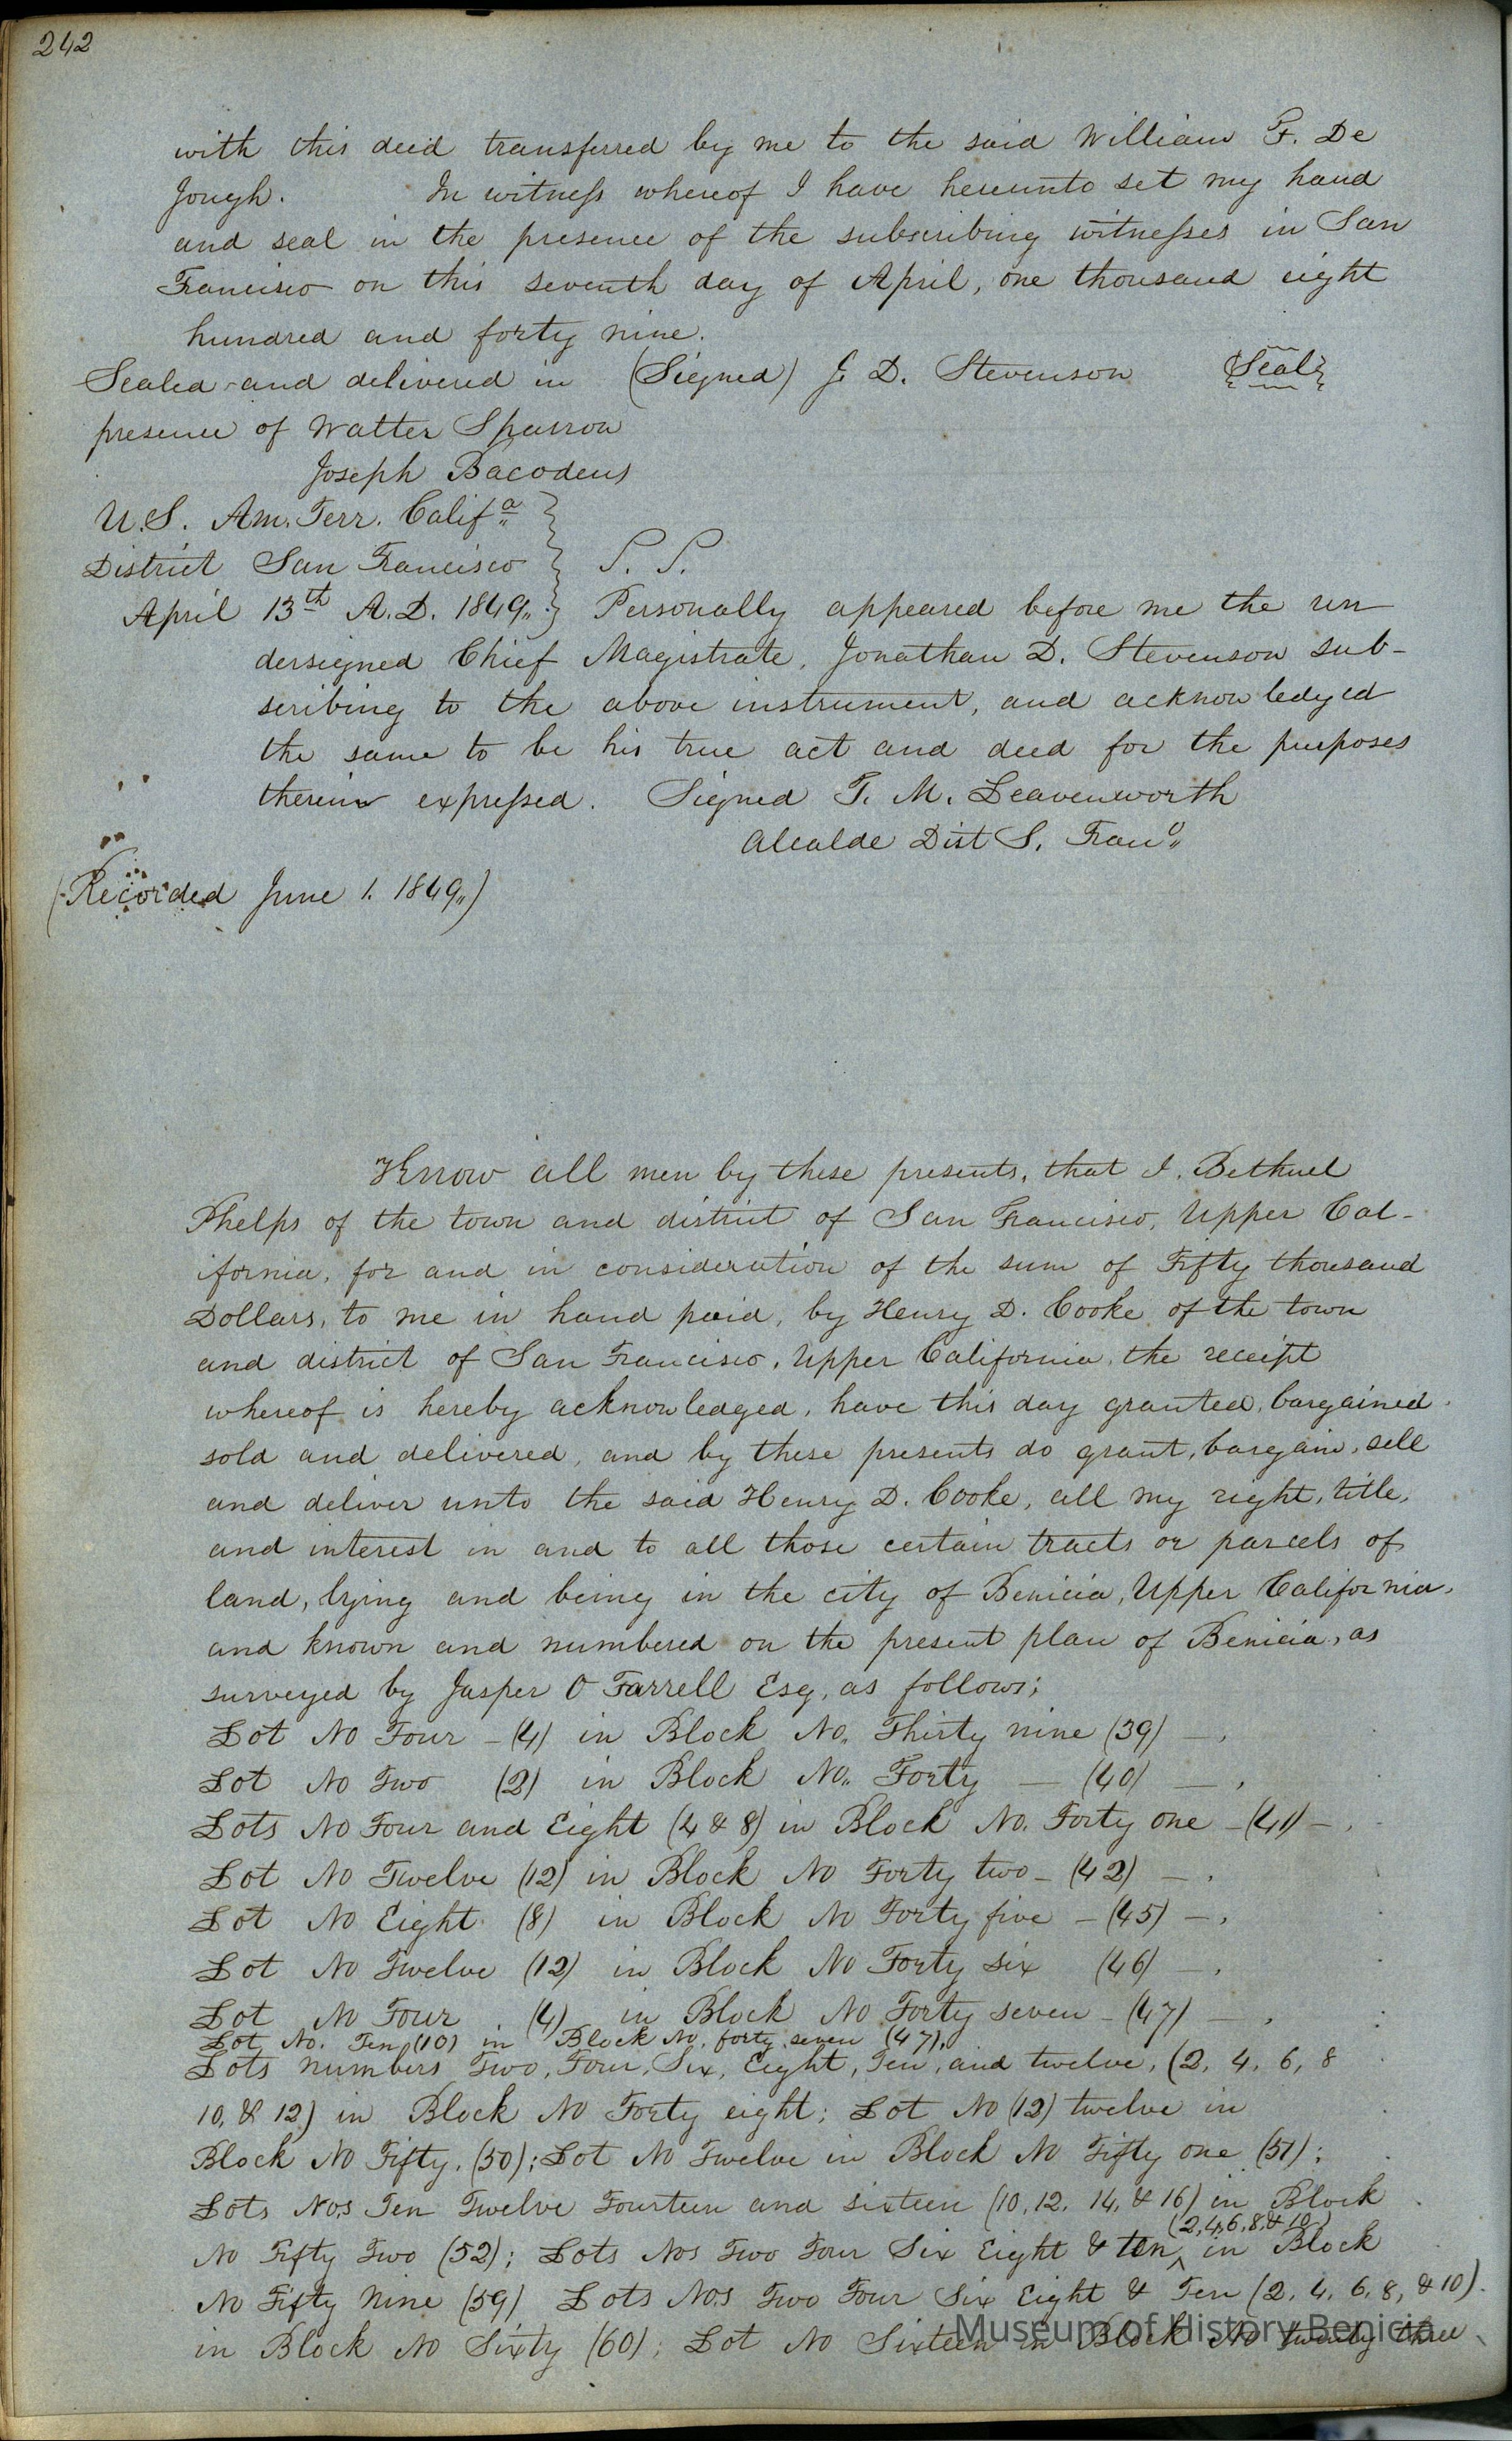 242
with this deed transferred by me to the said William F. De
Jough. In witness whereof I have hereunto set my hand
and seal in the presence of the subscribing witnesses in San
Francisco on this seventh day of April, one thousand eight
hundred and forty nine.
Sealed and delivered in (Signed) J. D. Stevenson {Seal}
presence of Walter Sparrow
Joseph Bacodeus
U.S. Am. Terr. Califa
District San Francisco } S. S.
April 13th A.D. 1849 } Personally appeared before me the un
dersigned Chief Magistrate, Jonathan D. Stevenson sub-
scribing to the above instrument, and acknowledged
the same to be his true act and deed for the purposes
therein expressed. Signed T. M. Leavenworth
Alcalde Dist S. Frano
(Recorded June 1. 1849)
Know all men by these presents, that I. Bethuel
Phelps of the town and district of San Francisco, Upper Cal-
ifornia, for and in consideration of the sum of Fifty thousand
Dollars, to me in hand paid, by Henry D. Cooke of the town
and district of San Francisco, Upper California, the receipt
whereof is hereby acknowledged, have this day granted, bargained
sold and delivered, and by these presents do grant, bargain, sell
and deliver unto the said Henry D. Cooke, all my right, title,
and interest in and to all those certain tracts or parcels of
land, lying and being in the city of Benicia, Upper California,
and known and numbered on the present plan of Benicia, as
surveyed by Jasper O Farrell Esq, as follows;
Lot No Four - (4) in Block No. Thirty nine (39) - ,
Lot No Two (2) in Block No. Forty - (40) - ,
Lots No Four and Eight (4 & 8) in Block No. Forty one - (41) - ,
Lot No Twelve (12) in Block No Forty two - (42) - ,
Lot No Eight (8) in Block No Forty five - (45) - ,
Lot No Twelve (12) in Block No Forty six (46) - ,
Lot No Four (4) in Block No Forty seven - (47) - ,
Lot No. Ten (10) in Block No. forty seven (47),
Lots numbers Two, Four, Six, Eight, Ten, and twelve, (2, 4, 6, 8
10, & 12) in Block No Forty eight; Lot No (12) twelve in
Block No Fifty, (50); Lot No Twelve in Block No Fifty one (51);
Lots Nos Ten Twelve Fourteen and sixteen (10, 12, 14, & 16) in Block
No Fifty Two (52); Lots Nos Two Four Six Eight & ten ^ (2, 4, 6, 8, & 10) in Block
No Fifty Nine (59) Lots Nos Two Four Six Eight & Ten (2, 4, 6, 8, & 10).
in Block No Sixty (60); Lot No Sixteen in Block No twenty three
Museum of History Benicia